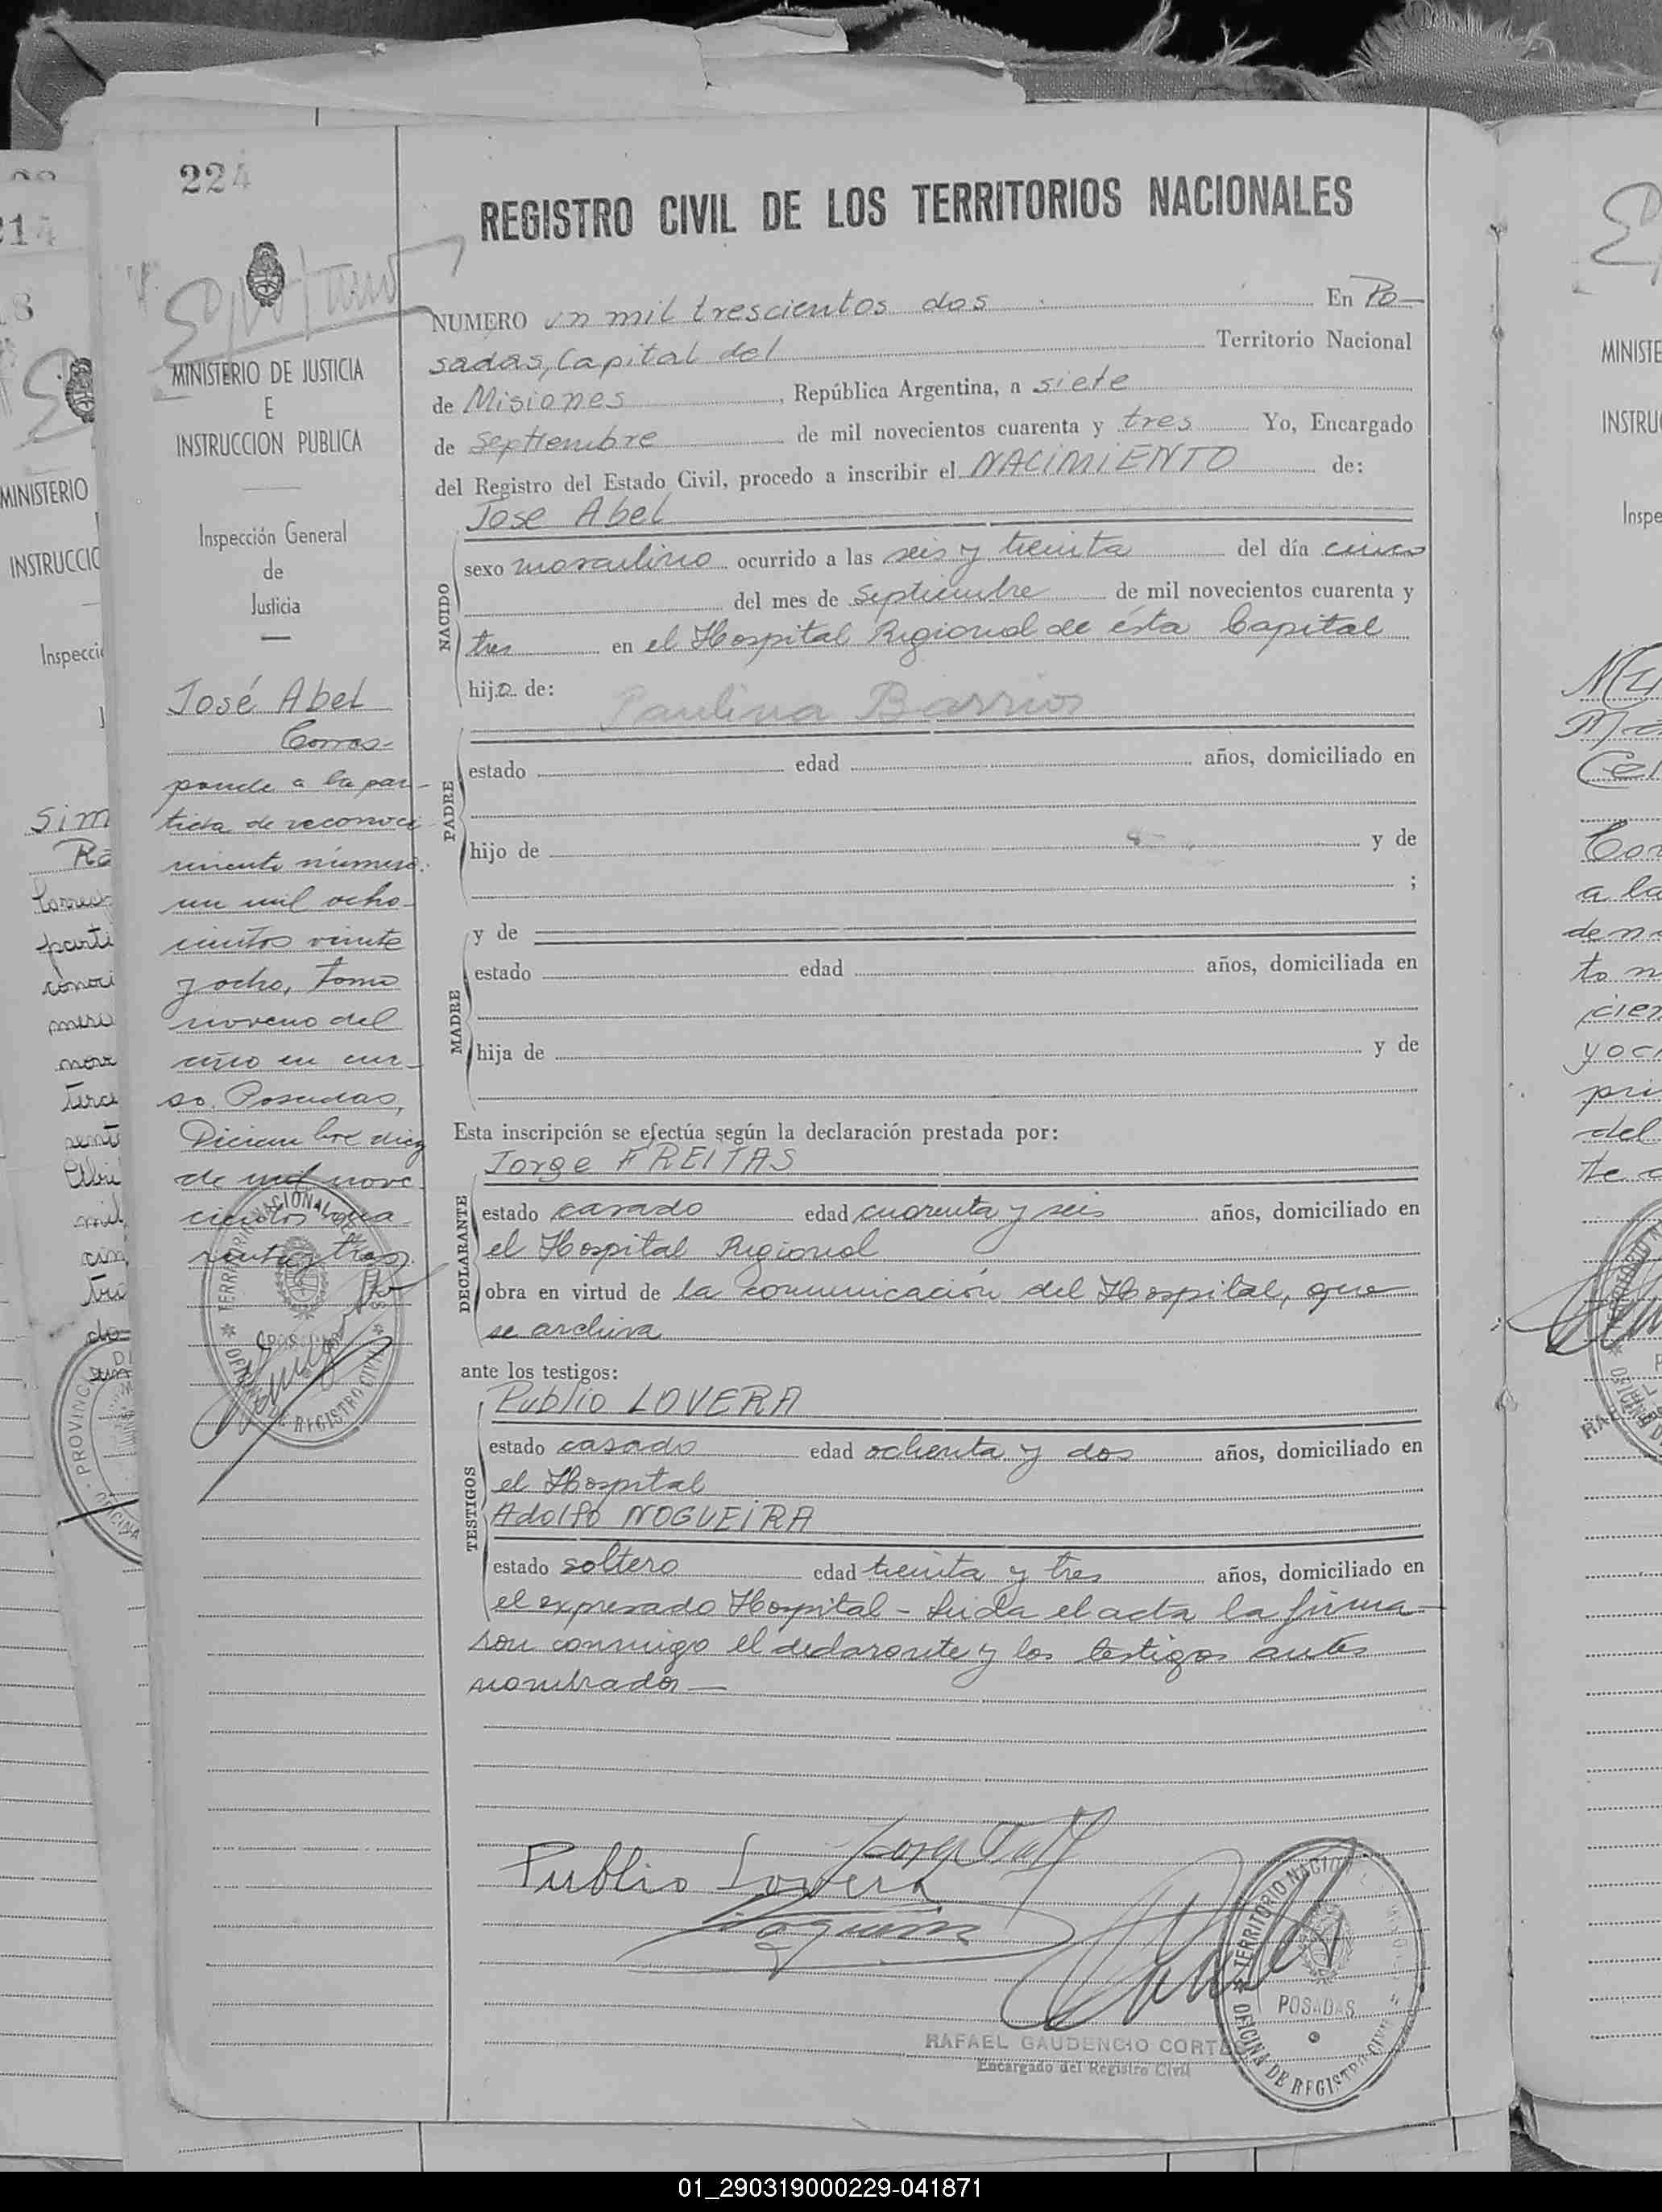 224
REGISTRO CIVIL DE LOS TERRITORIOS NACIONALES
MINISTERIO DE JUSTICIA
E
INSTRUCCION PUBLICA
Inspección General
de
Justicia
José Abel
Corres-
ponde a la par-
tida de reconoci
miento número
un mil ocho-
cientos veinte
y ocho, tomo
noveno del
año en cur-
so. Posadas,
Diciembre diez
de mil nove
cientos cua
renta y tres.
NUMERO un mil trescientos dos En Po-
sadas, Capital del Territorio Nacional
de Misiones, República Argentina, a siete
de Septiembre de mil novecientos cuarenta y tres Yo, Encargado
del Registro del Estado Civil, procedo a inscribir el NACIMIENTO de:
Jose Abel
NACIDO
sexo masculino ocurrido a las seis y treinta del día cinco
del mes de Septiembre de mil novecientos cuarenta y
tres en el Hospital Regional de ésta Capital
hijo de: Paulina Barrios
PADRE
estado edad años, domiciliado en
hijo de y de
;
y de
MADRE
estado edad años, domiciliada en
hija de y de
Esta inscripción se efectúa según la declaración prestada por:
Jorge FREITAS
DECLARANTE
estado casado edad cuarenta y seis años, domiciliado en
el Hospital Regional
obra en virtud de la comunicación del Hospital, que
se archiva
ante los testigos:
Publio LOVERA
TESTIGOS
estado casado edad ochenta y dos años, domiciliado en
el Hospital
Adolfo NOGUEIRA
estado soltero edad treinta y tres años, domiciliado en
el expresado Hospital - Leida el acta la firma-
ron conmigo el declarante y los testigos antes
nombrados-
Publio Lovera
TERRITORIO NACIONAL
POSADAS
OFICINA DE REGISTRO CIVIL
RAFAEL GAUDENCIO CORTES
Encargado del Registro Civil
01_290319000229-041871